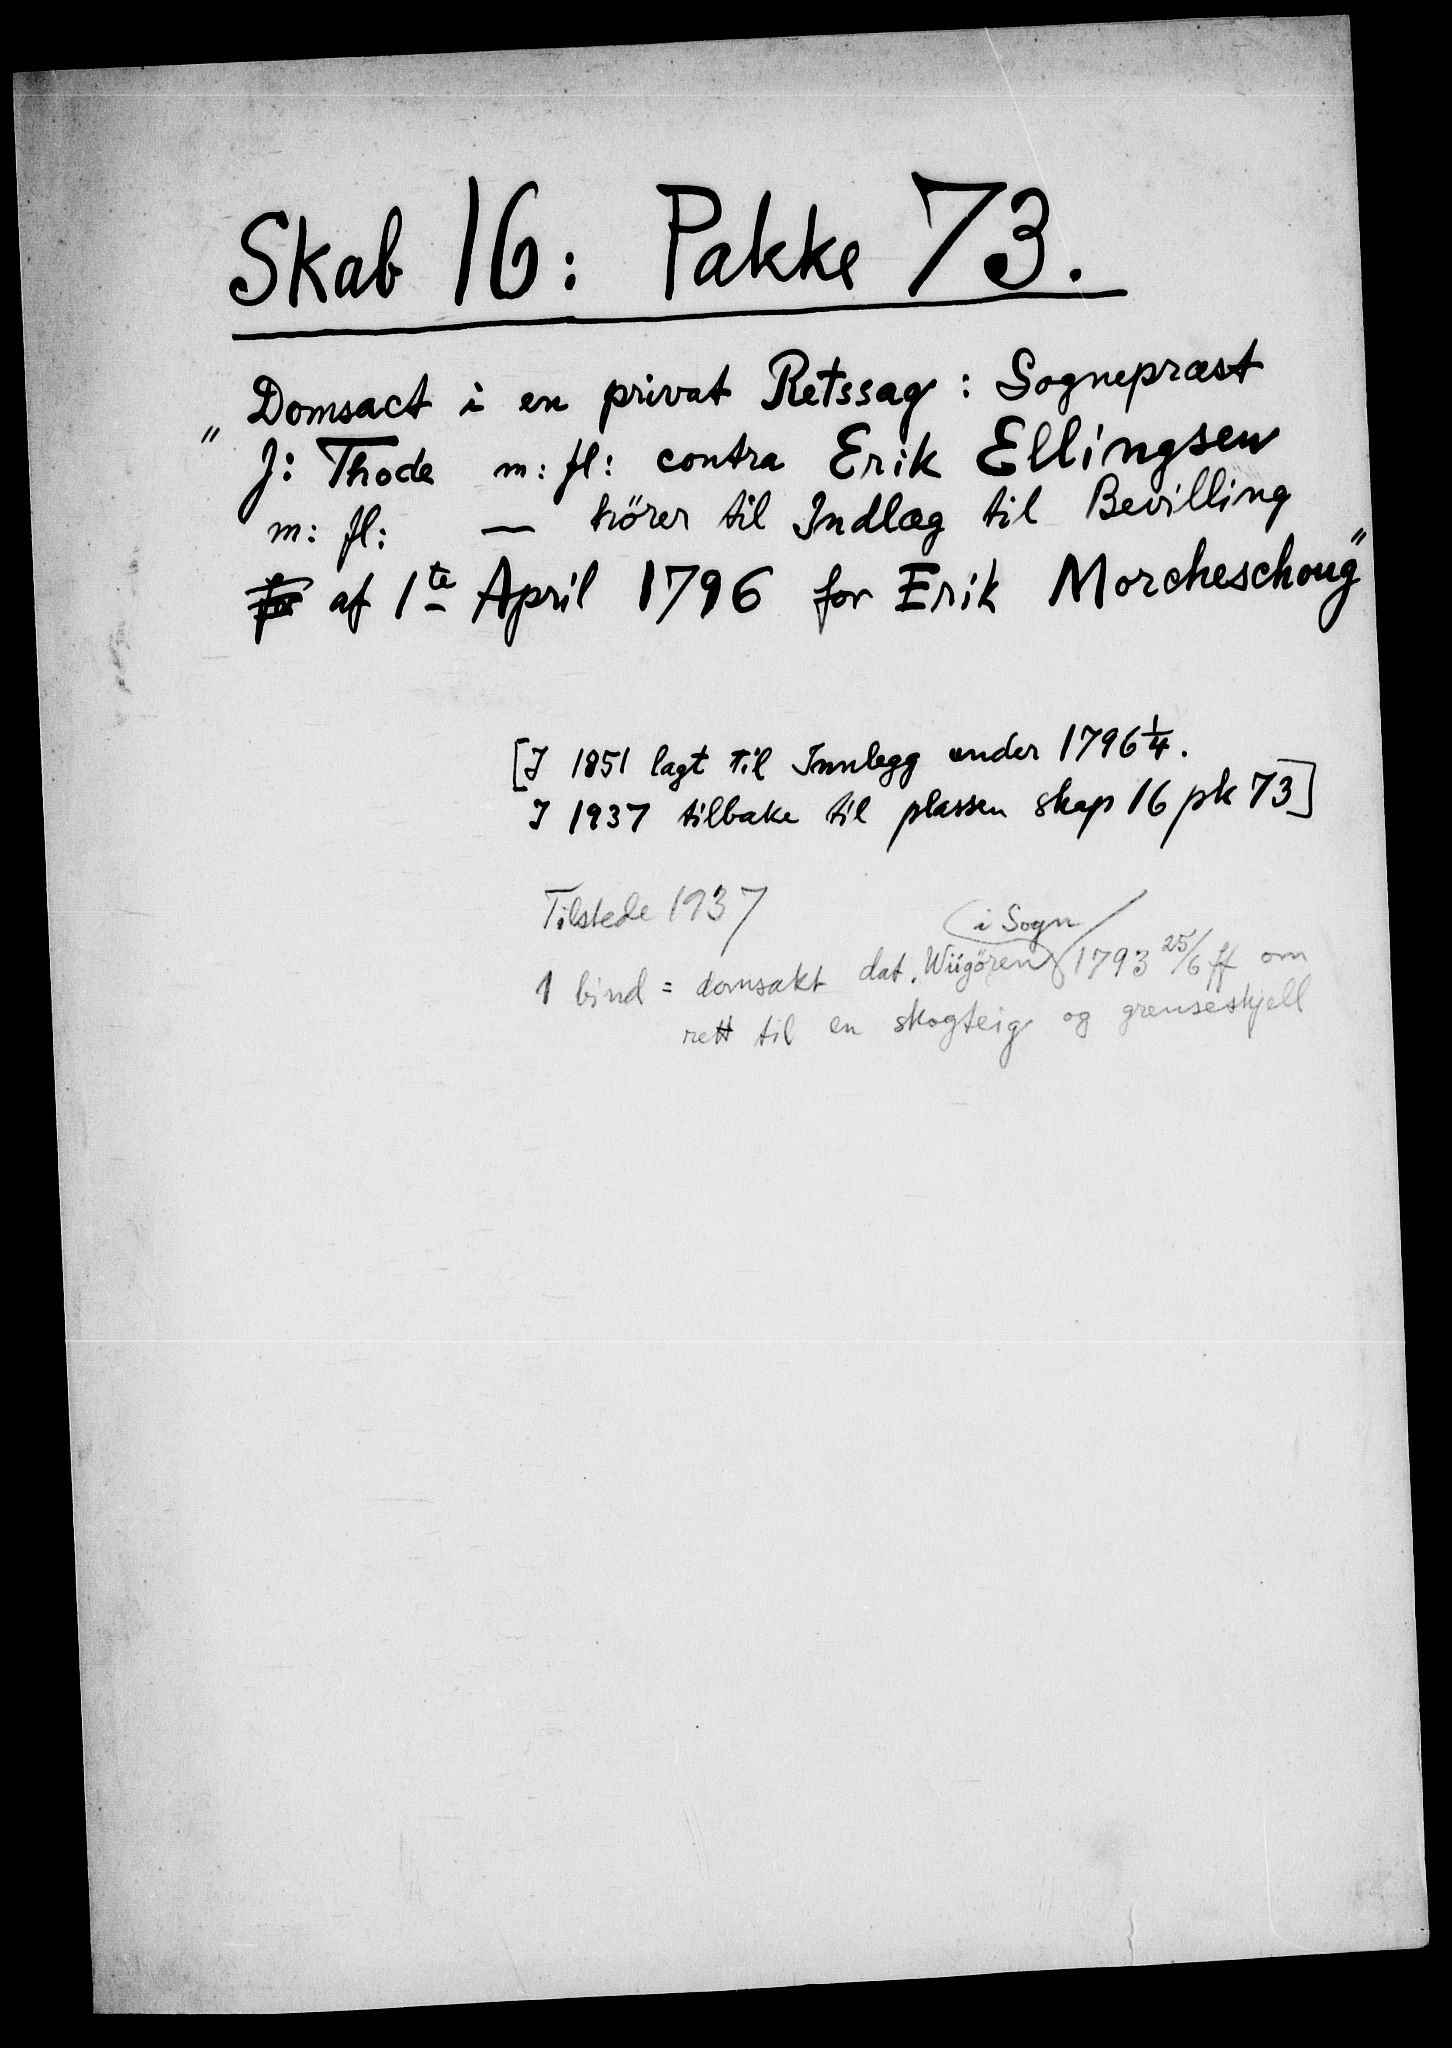 Skab 16: Pakke 73.
Domsact i en privat Retssag: Sognepræst
" J: Thode m: fl: contra Erik Ellingsen
m: fl: — hörer til Indlæg til Bevilling
for af 1te April 1796 for Erik Morcheschoug"
[I 1851 lagt til Innlegg under 1796 1/4.
I 1937 tilbake til plassen skap 16 pk 73]
Tilstede 1937
i Sogn
1 bind = domsakt dat. Wiigören 1793 25/6 ff om
rett til en skogteig og grenseskjell